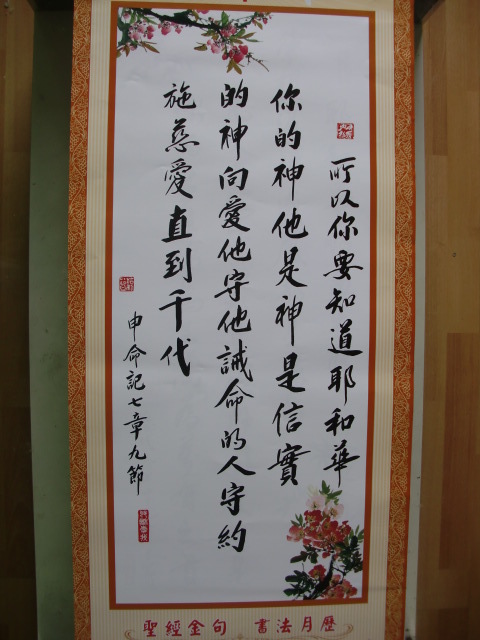 所以你要知道耶和華
你的神他是神是信實
的神向愛他守他誡命的人守約
施慈愛直到千代
申命記七章九節
聖經金句 書法月歷